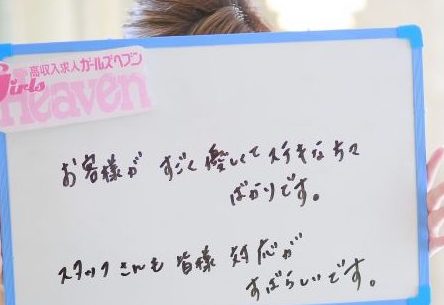 高収入求人ガールズヘブン
Girls
Heaven
お客様が すごく優しくてステキな方々
ばかりです。
スタッフさんも皆様 対応が
すばらしいです。